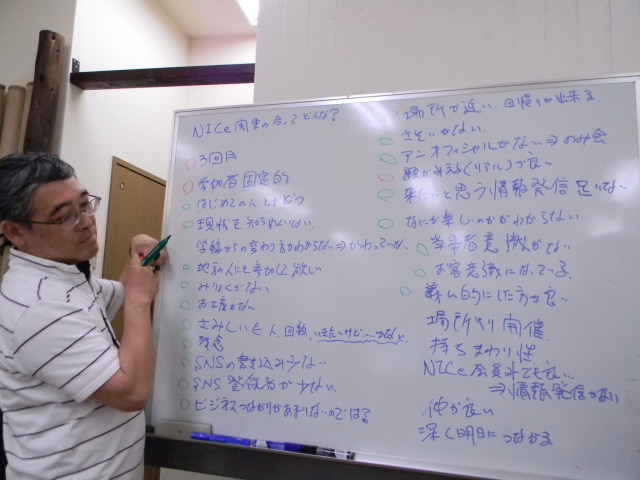 NICe関東の会ってどんな?
3回目
参加者固定的
はじめての人とまどう
現状を知られていない
学編からの変わり方がわからない⇒かわっていない
地元の人にも参加して欲しい
みりょくがない
お土産がない
さみしい 人、回数、
残念
SNSの書き込み少ない
SNS登録者が少ない
ビジネスつながりがあまりないのでは?
場所が近い、日帰りが出来る
さそいがない
アンオフィシャルがない⇒のみ会
顔がみえる(リアル)で良い
来たいと思う情報発信足りてない
なにが楽しいのかがわからない
当事者意識がない
お客意識になっている
義ム的にした方が良い
場所より開催
持ちまわり性
NICe会員外でも良い
⇒情報発信がない
仲が良い
深く明日につながる